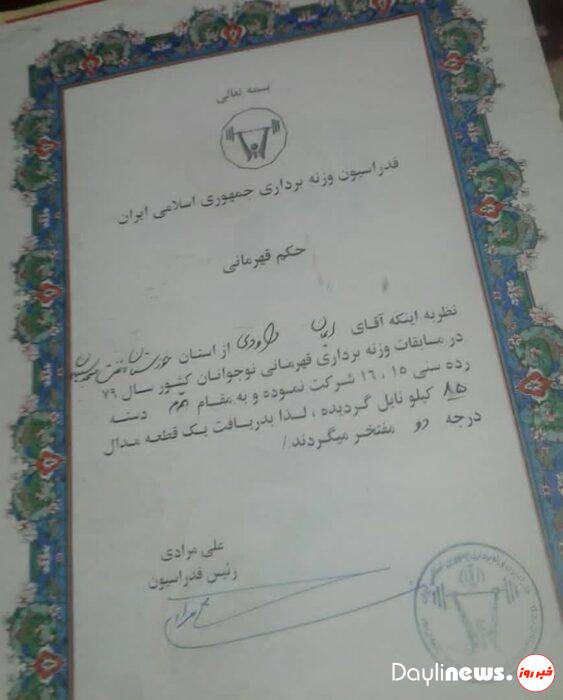 بسمه تعالی
فدراسیون وزنه برداری جمهوری اسلامی ایران
حکم قهرمانی
نظر به اینکه آقای ایمان داودی از استان خوزستان نفت
در مسابقات وزنه برداری قهرمانی نوجوانان کشور سال ۷۹
رده سنی ۱۵ ، ۱۶ شرکت نموده و به مقام دسته
۸۵ کیلو نایل گردیده ، لذا بدریافت یک قطعه مدال
درجه دو مفتخر میگردند./
علی مرادی
رئیس فدراسیون
Daylinews.com
خبر روز